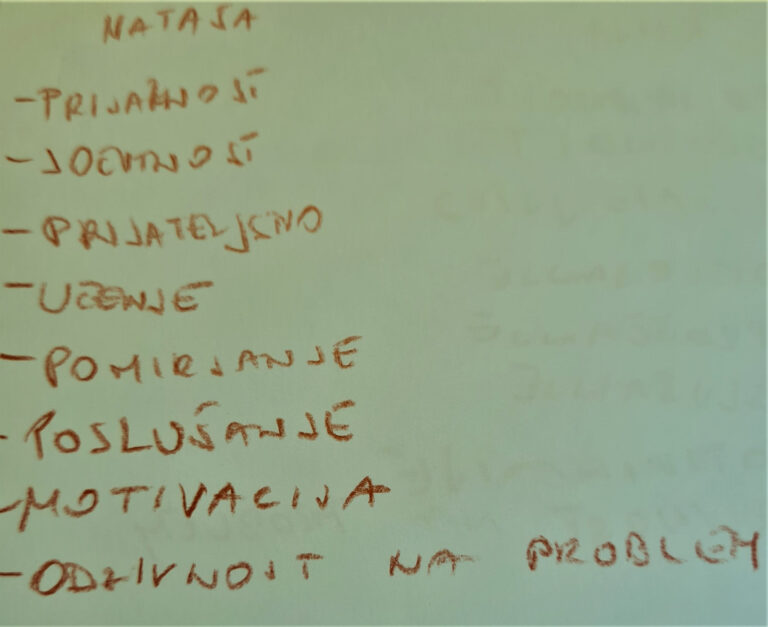 NATAŠA
-PRIJAZNOST
-
-PRIJATELJSTVO
-UČENJE
-POMIRJANJE
-POSLUŠANJE
-MOTIVACIJA
-ODZIVNOST NA PROBLEM